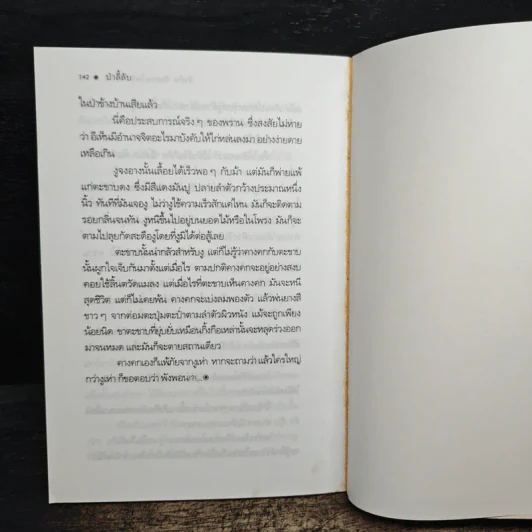 142 ● ป่าลี้ลับ
ในป่าข้างบ้านเสียแล้ว
นี่คือประสบการณ์จริง ๆ ของพราน ซึ่งสงสัยไม่หาย
ว่า อีเห็นมีอำนาจจิตอะไรมาบังคับให้ไก่หล่นลงมา อย่างง่ายดาย
เหลือเกิน
งูจงอางนั้นเลื้อยได้เร็วพอ ๆ กับม้า แต่มันก็พ่ายแพ้
แก่ตะขาบดง ซึ่งมีสีแดงมันปู ปลายลำตัวกว้างประมาณหนึ่ง
นิ้ว ทันทีที่มันเจองู ไม่ว่างูใช้ความเร็วสักแค่ไหน มันก็จะติดตาม
รอยกลิ่นจนทัน งูหนีขึ้นไปอยู่บนยอดไม้หรือในโพรง มันก็จะ
ตามไปลุยกัดสะดืองูโดยที่งูมิได้ต่อสู้เลย
ตะขาบนั้นน่ากลัวสำหรับงู แต่ก็ไม่รู้ว่าคางคกกับตะขาบ
นั้นผูกใจเจ็บกันมาตั้งแต่เมื่อไร ตามปกติคางคกจะอยู่อย่างสงบ
คอยใช้ลิ้นตวัดแมลง แต่เมื่อไรที่ตะขาบเห็นคางคก มันจะหนี
สุดชีวิต แต่ก็ไม่เคยพ้น คางคกจะเบ่งลมพองตัว แล้วพ่นยางสี
ขาว ๆ จากต่อมตะปุ่มตะป่ำตามลำตัวผิวหนัง แม้จะถูกเพียง
น้อยนิด ขาตะขาบที่ยุ่บยั่บเหมือนกิ้งกือเหล่านั้นจะหลุดร่วงออก
มาจนหมด และมันก็จะตายสถานเดียว
คางคกเองก็แพ้ภัยจากงูเห่า หากจะถามว่า แล้วใครใหญ่
กว่างูเห่า ก็ขอตอบว่า พังพอนค่ะ...◉